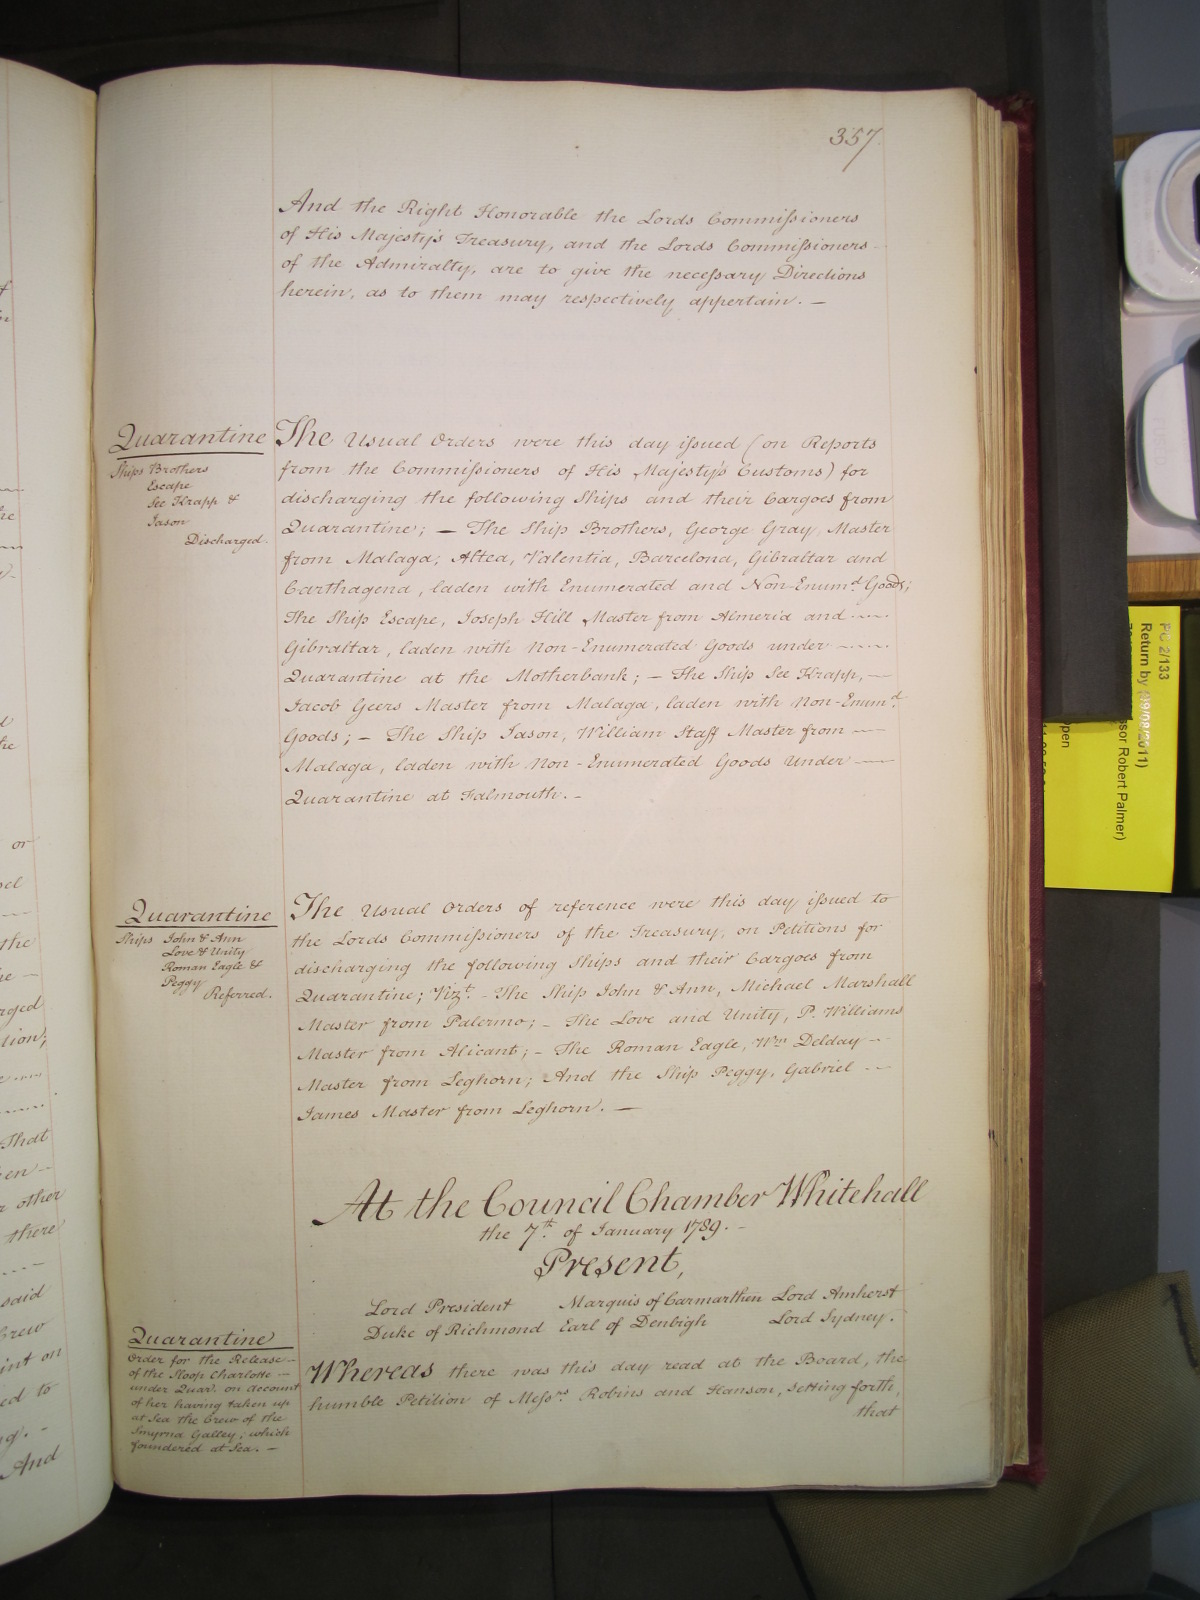 357
And the Right Honorable the Lords Commissioners
of His Majesty's Treasury, and the Lords Commissioners
of the Admiralty, are to give the necessary Directions
herein, as to them may respectively appertain. —
Quarantine
Ships Brothers
Escape
See Krapp &
Jason
Discharged.
The Usual Orders were this day issued (on Reports
from the Commissioners of His Majesty's Customs) for
discharging the following Ships and their Cargoes from
Quarantine; — The Ship Brothers, George Gray Master
from Malaga; Altea, Valentia, Barcelona, Gibraltar and
Carthagena, laden with Enumerated and Non-Enumd. Goods;
The Ship Escape, Joseph Hill Master from Almeria and
Gibraltar, laden with Non-Enumerated Goods under
Quarantine at the Motherbank; — The Ship See Krapp, —
Jacob Geers Master from Malaga, laden with Non-Enumd.
Goods; — The Ship Jason, William Staff Master from —
Malaga, laden with Non-Enumerated Goods Under —
Quarantine at Falmouth. -
Quarantine
Ships John & Ann
Love & Unity
Roman Eagle &
Peggy
Referred.
The Usual Orders of reference were this day issued to
the Lords Commissioners of the Treasury, on Petitions for
discharging the following Ships and their Cargoes from
Quarantine; Vizt. - The Ship John & Ann, Michael Marshall
Master from Palermo; - The Love and Unity, P. Williams
Master from Alicant; - The Roman Eagle, Wm Delday -
Master from Leghorn; And the Ship Peggy, Gabriel -
James Master from Leghorn. —
At the Council Chamber Whitehall
the 7th. of January 1789. -
Present,
Lord President Marquis of Carmarthen Lord Amherst
Duke of Richmond Earl of Denbigh Lord Sydney.
Quarantine
Order for the Release -
of the Sloop Charlotte -
under Quar. on account
of her having taken up
at Sea the Crew of the
Smyrna Galley; which
foundered at Sea. -
Whereas there was this day read at the Board, the
humble Petition of Messrs. Robins and Hanson, setting forth,
that
PC 2/133
Return by (09/08/2011)
ssor Robert Palmer)
open
or
the
That
other
there
said
Crew
int on
ed to
And